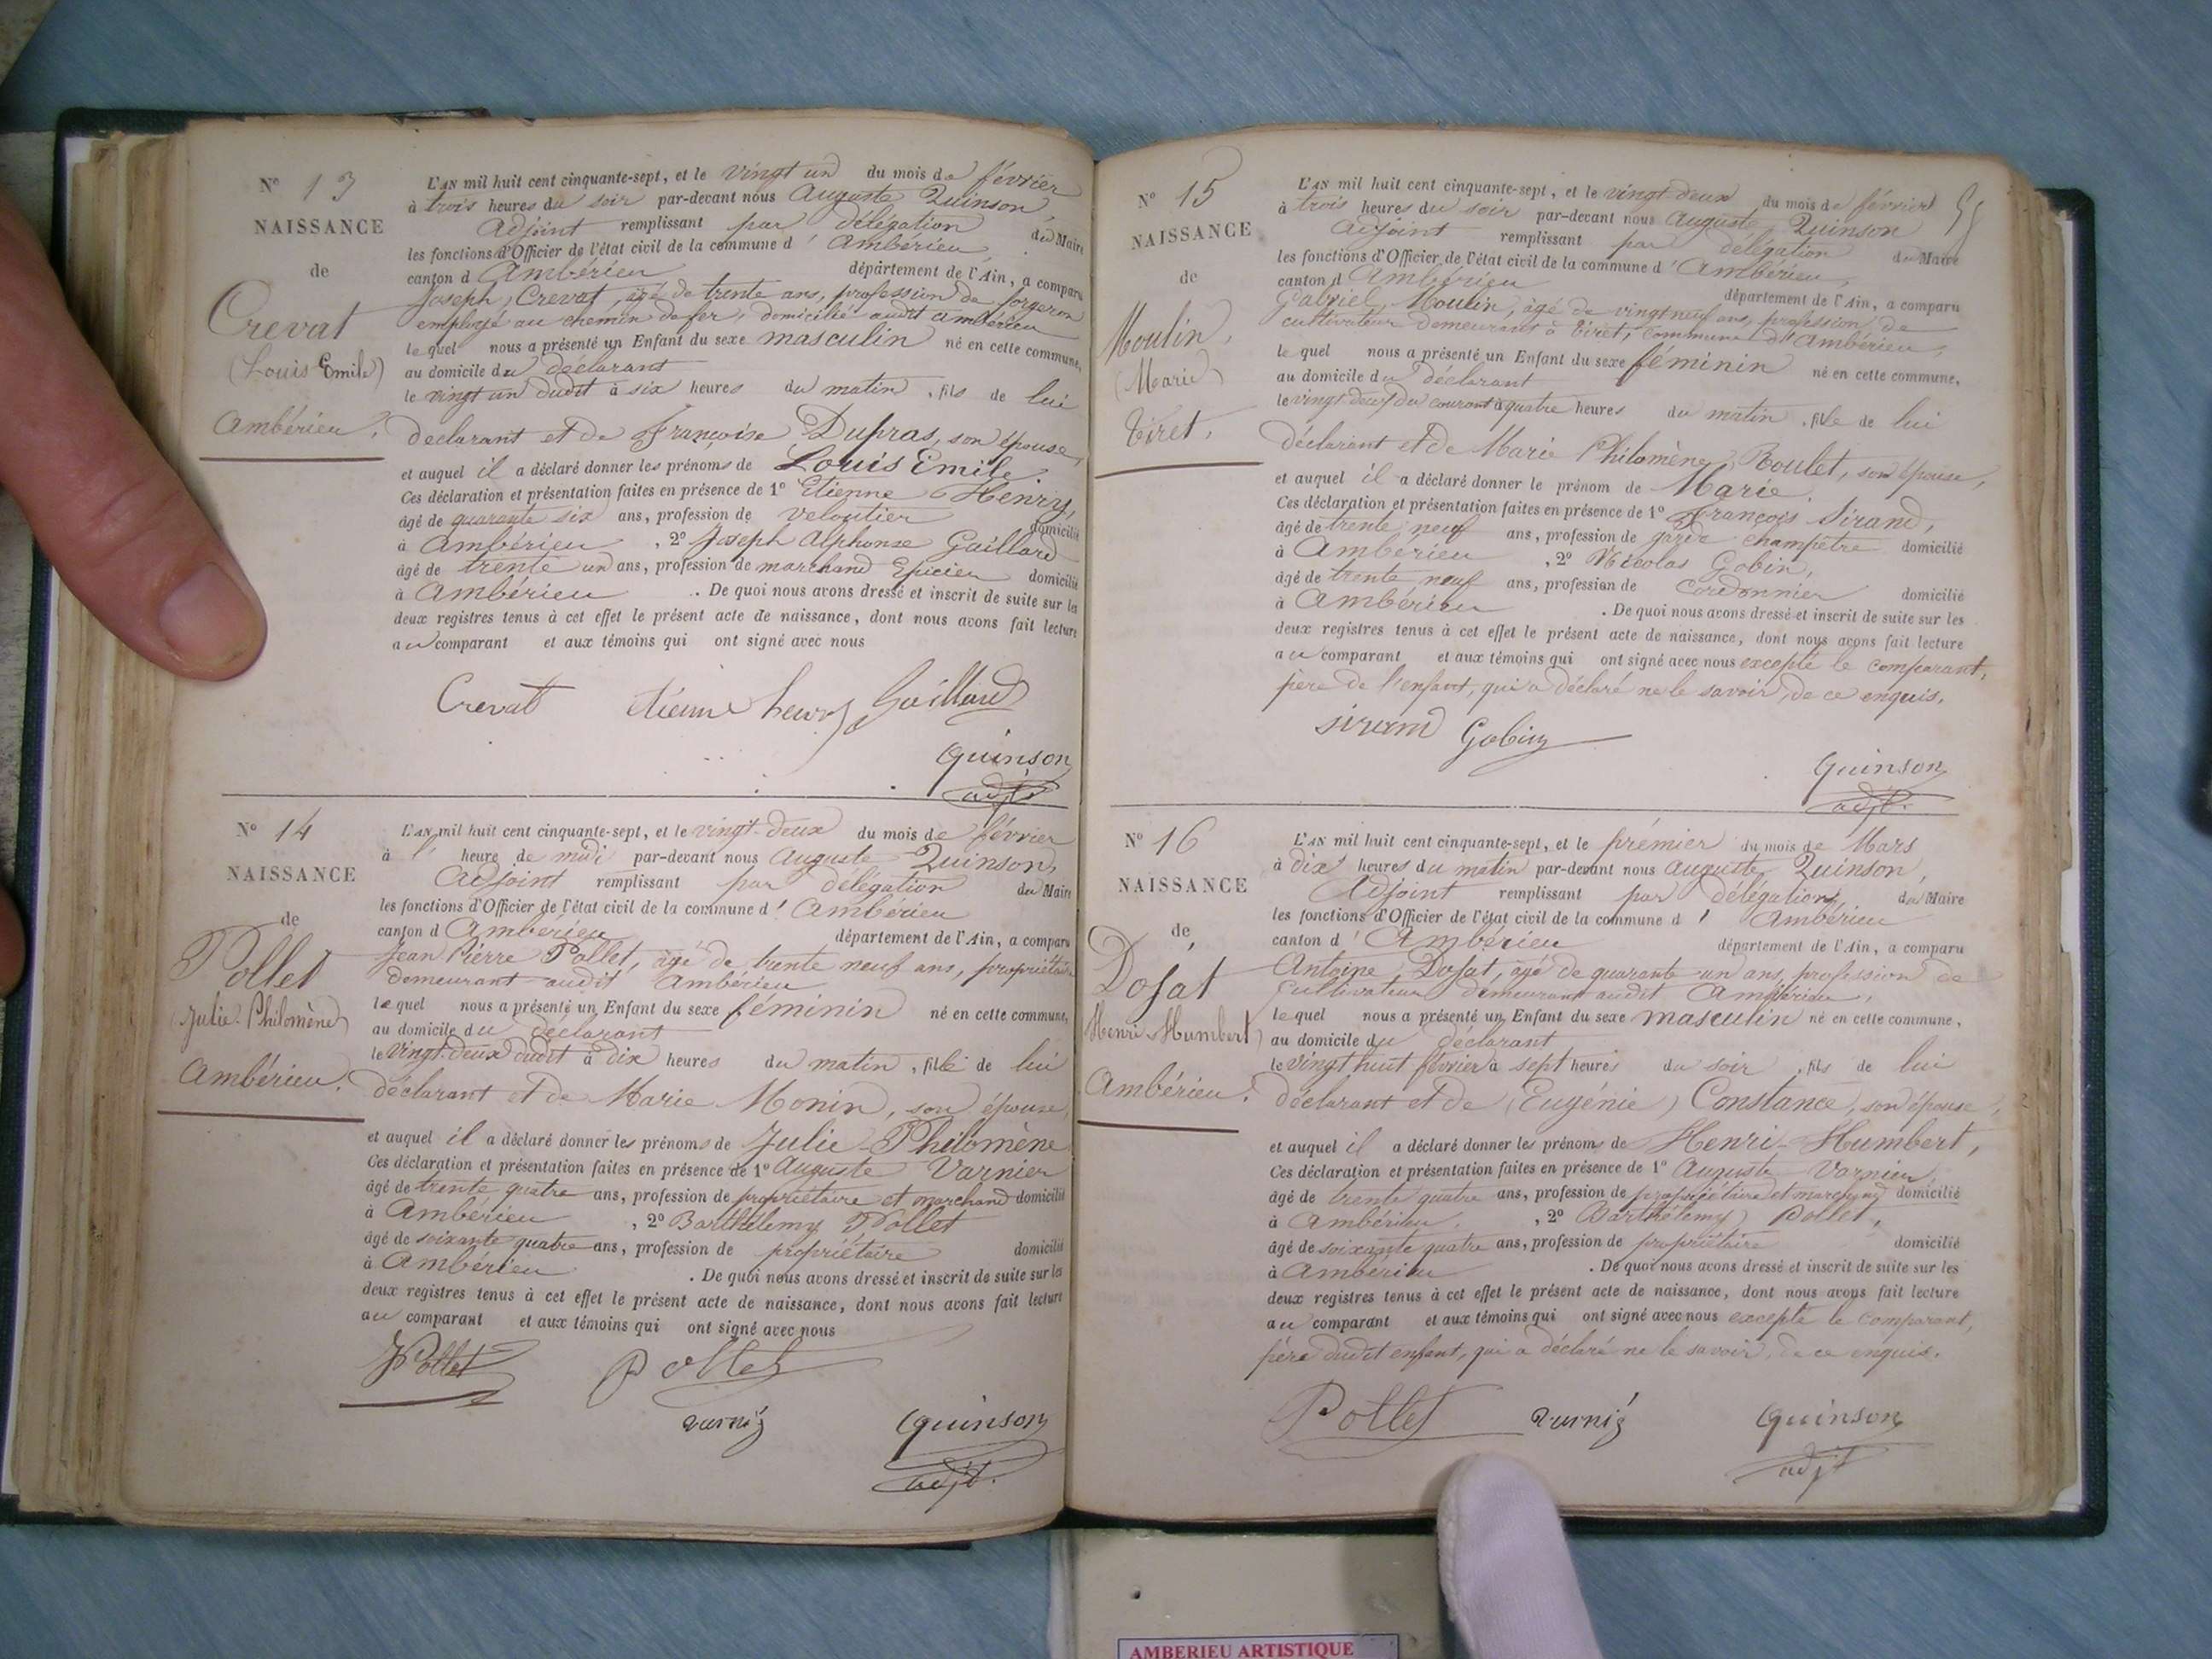 N° 13
NAISSANCE
de
Crevat
(Louis Emile)
Ambérieu.
L'AN mil huit cent cinquante-sept, et le vingt un du mois de février
à trois heures du soir par-devant nous Auguste Quinson,
Adjoint remplissant par délégation du Maire
les fonctions d'Officier de l'état civil de la commune d'Ambérieu,
canton d'Ambérieu département de l'Ain, a comparu
Joseph Crevat, âgé de trente ans, profession de forgeron
employé au chemin de fer, domicilié audit Ambérieu
lequel nous a présenté un Enfant du sexe masculin né en cette commune,
au domicile du déclarant
le vingt un dudit à six heures du matin, fils de lui
déclarant et de Françoise Dupras, son épouse,
et auquel il a déclaré donner les prénoms de Louis Emile.
Ces déclaration et présentation faites en présence de 1° Etienne Henry,
âgé de quarante six ans, profession de veloutier domicilié
à Ambérieu, 2° Joseph Alphonse Gaillard
âgé de trente un ans, profession de marchand Epicier domicilié
à Ambérieu. De quoi nous avons dressé et inscrit de suite sur les
deux registres tenus à cet effet le présent acte de naissance, dont nous avons fait lecture
au comparant et aux témoins qui ont signé avec nous
Crevat étienne henry Gaillard
Quinson
adjt.
N° 14
NAISSANCE
de
Pollet
(Julie-Philomène)
Ambérieu.
L'AN mil huit cent cinquante-sept, et le vingt-deux du mois de février
à l'heure de midi par-devant nous Auguste Quinson,
Adjoint remplissant par délégation du Maire
les fonctions d'Officier de l'état civil de la commune d'Ambérieu
canton d'Ambérieu département de l'Ain, a comparu
Jean Pierre Pollet, âgé de trente neuf ans, propriétaire
demeurant audit Ambérieu
lequel nous a présenté un Enfant du sexe féminin né en cette commune,
au domicile du déclarant
le vingt-deux dudit à dix heures du matin, fille de lui
déclarant et de Marie Monin, son épouse,
et auquel il a déclaré donner les prénoms de Julie-Philomène
Ces déclaration et présentation faites en présence de 1° Auguste Varnier
âgé de trente quatre ans, profession de propriétaire et marchand domicilié
à Ambérieu, 2° Barthélemy Pollet
âgé de soixante quatre ans, profession de propriétaire domicilié
à Ambérieu. De quoi nous avons dressé et inscrit de suite sur les
deux registres tenus à cet effet le présent acte de naissance, dont nous avons fait lecture
au comparant et aux témoins qui ont signé avec nous
JPollet Pollet
Quinson
adjt.
55
N° 15
NAISSANCE
de
Moulin,
(Marie)
Tiret.
L'AN mil huit cent cinquante-sept, et le vingt-deux du mois de février
à trois heures du soir par-devant nous Auguste Quinson
Adjoint remplissant par délégation du Maire
les fonctions d'Officier de l'état civil de la commune d'Ambérieu,
canton d'Ambérieu département de l'Ain, a comparu
Gabriel Moulin, âgé de vingt neuf ans, profession de
cultivateur demeurant à Tiret, commune d'Ambérieu,
lequel nous a présenté un Enfant du sexe féminin né en cette commune,
au domicile du déclarant
le vingt deux du courant à quatre heures du matin, fille de lui
déclarant et de Marie Philomène Roulet, son épouse,
et auquel il a déclaré donner le prénom de Marie.
Ces déclaration et présentation faites en présence de 1° François Sirand,
âgé de trente neuf ans, profession de garde champêtre domicilié
à Ambérieu, 2° Nicolas Gobin,
âgé de trente neuf ans, profession de Cordonnier domicilié
à Ambérieu. De quoi nous avons dressé et inscrit de suite sur les
deux registres tenus à cet effet le présent acte de naissance, dont nous avons fait lecture
au comparant et aux témoins qui ont signé avec nous excepté le comparant,
père de l'enfant, qui a déclaré ne le savoir, de ce enquis.
Sirand Gobin
Quinson
adjt.
N° 16
NAISSANCE
de
Dofat
Henri-Humbert)
Ambérieu.
L'AN mil huit cent cinquante-sept, et le premier du mois de Mars
à dix heures du matin par-devant nous Auguste Quinson,
Adjoint remplissant par délégation, du Maire
les fonctions d'Officier de l'état civil de la commune d'Ambérieu
canton d'Ambérieu département de l'Ain, a comparu
Antoine Dofat, âgé de quarante un ans, profession de
cultivateur demeurant audit Ambérieu,
lequel nous a présenté un Enfant du sexe masculin né en cette commune,
au domicile du déclarant
le vingt huit février à sept heures du soir, fils de lui
déclarant et de (Eugénie) Constance, son épouse,
et auquel il a déclaré donner les prénoms de Henri-Humbert,
Ces déclaration et présentation faites en présence de 1° Auguste Varnier
âgé de trente quatre ans, profession de propriétaire et marchand domicilié
à Ambérieu, 2° Barthélemy Pollet,
âgé de soixante quatre ans, profession de propriétaire domicilié
à Ambérieu. De quoi nous avons dressé et inscrit de suite sur les
deux registres tenus à cet effet le présent acte de naissance, dont nous avons fait lecture
au comparant et aux témoins qui ont signé avec nous excepté le comparant,
père dudit enfant, qui a déclaré ne le savoir, de ce enquis.
Pollet Quinson
adjt
AMBERIEU ARTISTIQUE